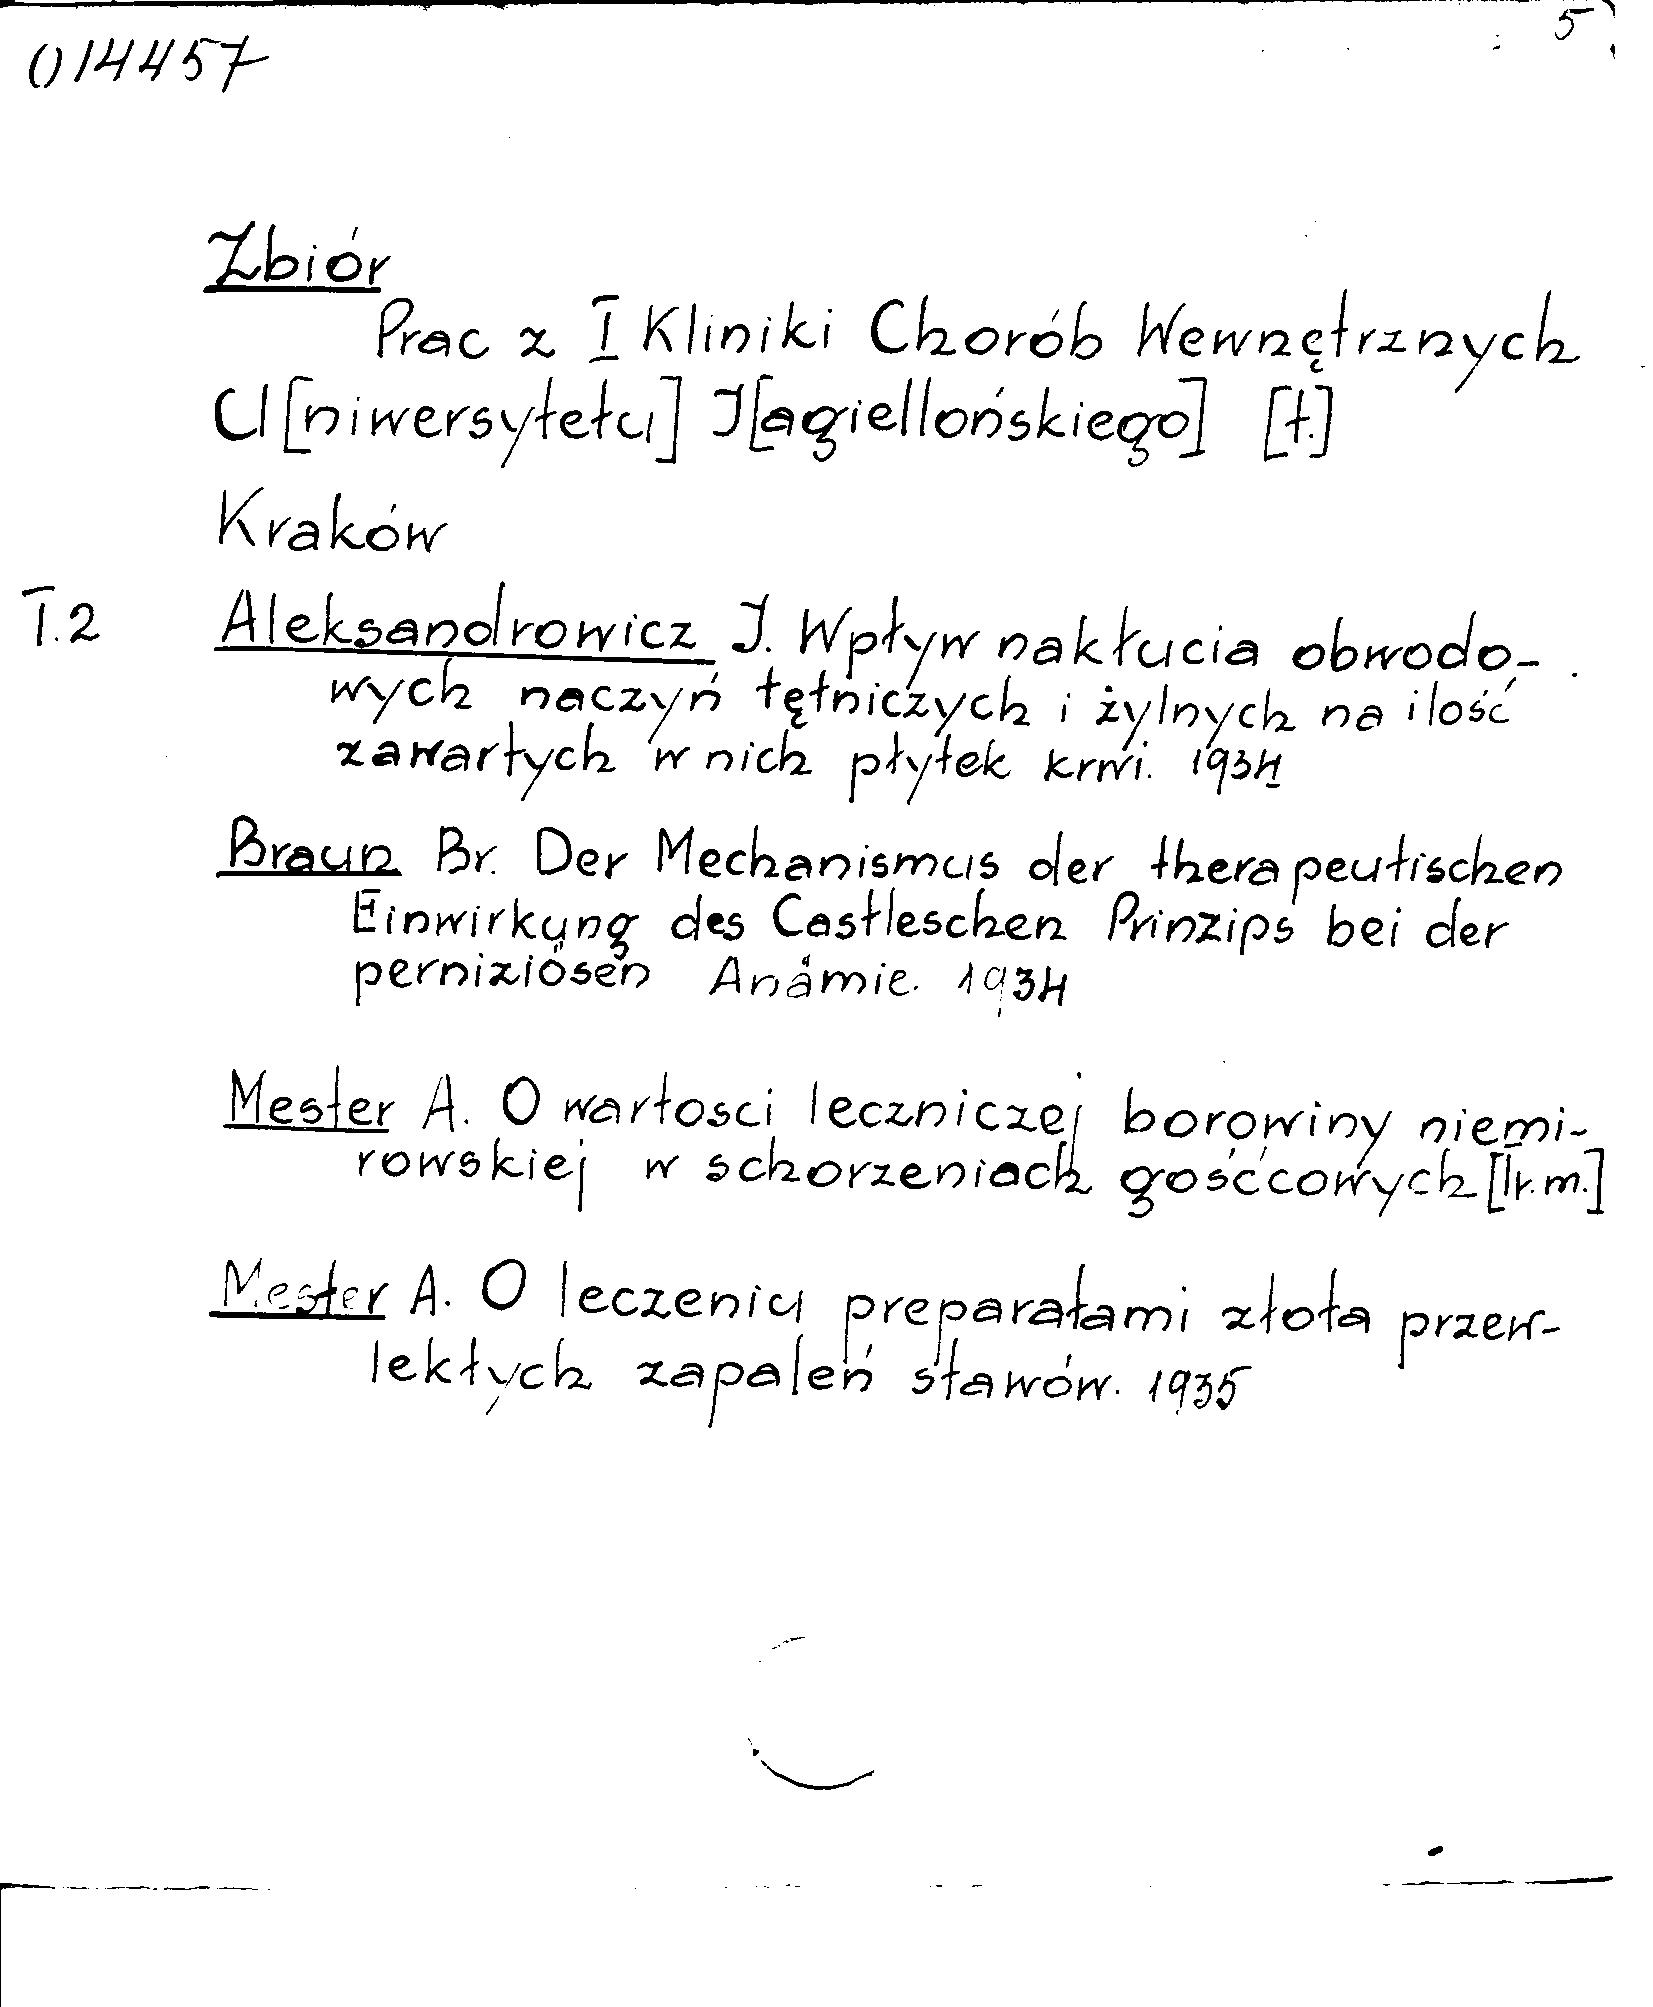 5
014457
Zbiór
Prac z I Kliniki Chorób Wewnętrznych
U[niwersytetu] J[agiellońskiego] [t.]
Kraków
T.2 Aleksandrowicz J. Wpływ nakłucia obwodo-
wych naczyń tętniczych i żylnych na ilość
zawartych w nich płytek krwi. 1934
Braun Br. Der Mechanismus der therapeutischen
Einwirkung des Castleschen Prinzips bei der
perniziösen Anämie. 1934
Mester A. O wartosci leczniczej borowiny niemi-
rowskiej w schorzeniach gośćcowych [b.r.m.]
Mester A. O leczeniu preparatami złota przew-
lekłych zapaleń stawów. 1935